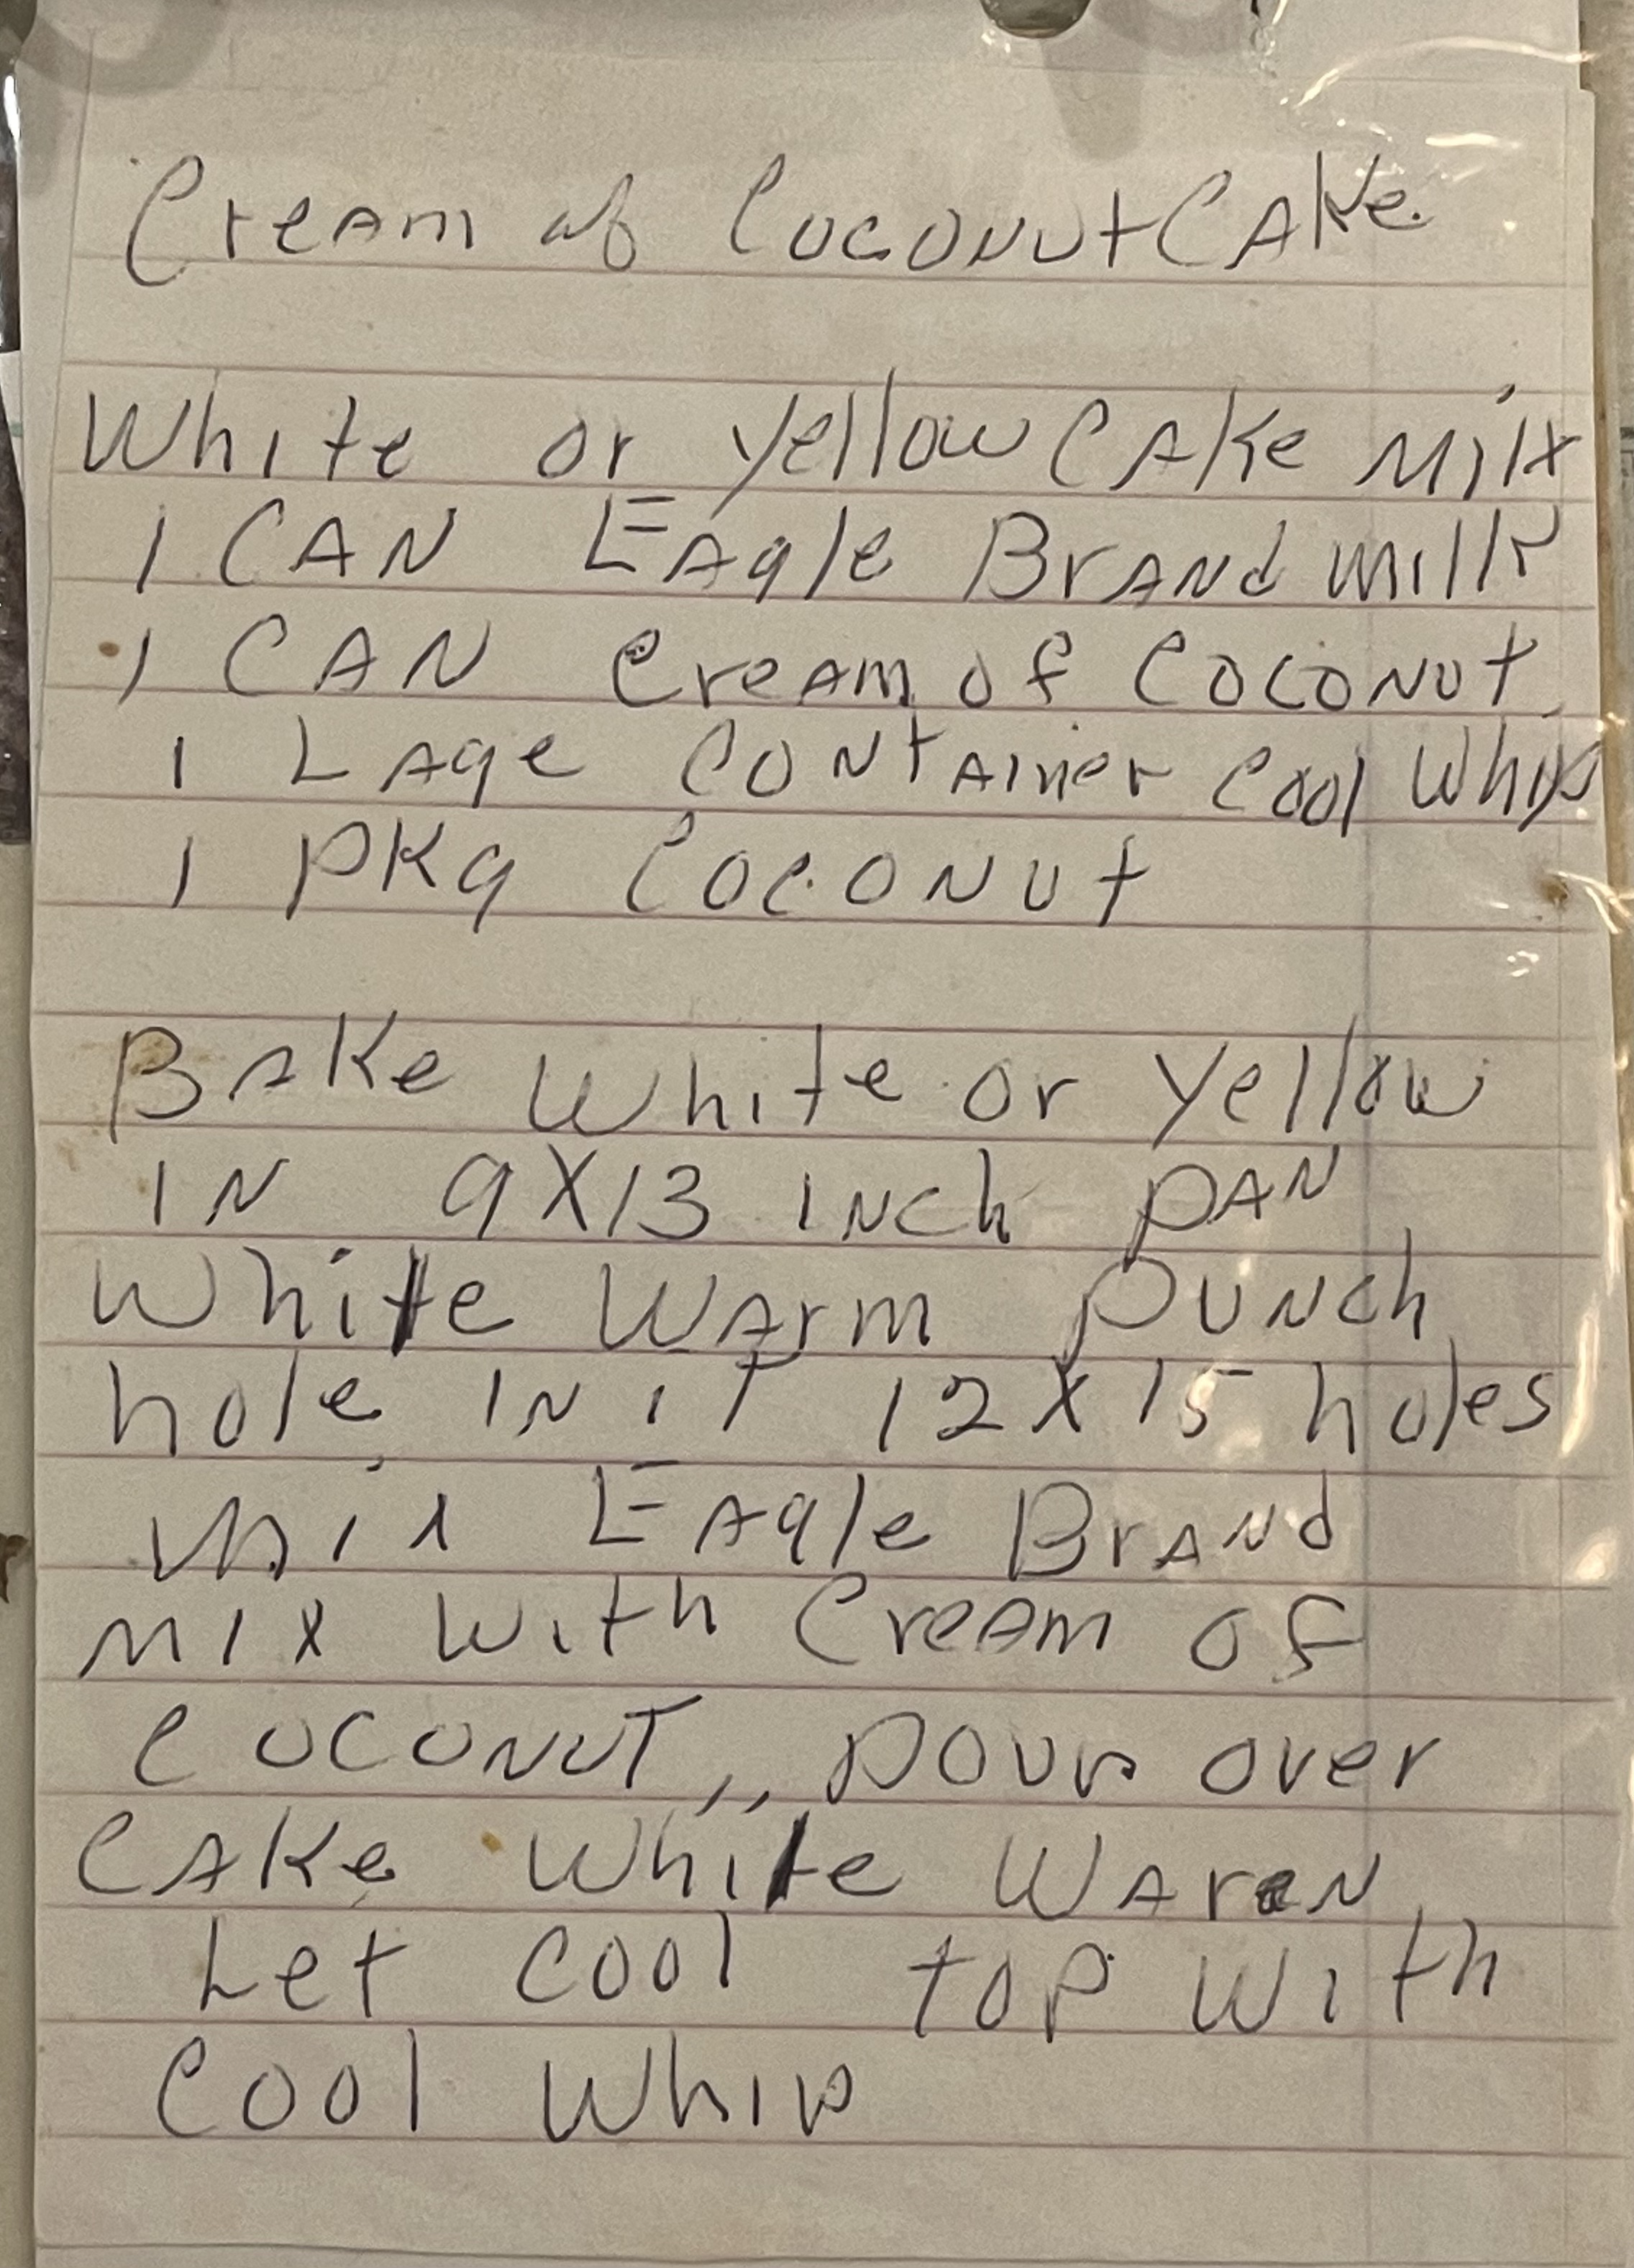 Cream of Coconut Cake
White or yellow Cake Milx
1 CAN EAgle BrANd milk
1 CAN CreAm of COCONUT
1 LAge CONtAiner Cool Whip
1 PKg COCONUt
BAKe White or yellow
IN 9X13 INch PAN
White WArm PUNch
hole IN iT 12 X 15 holes
mix EAgle BrANd
mix With CreAm of
COCONUT,, Pour over
CAKe White WAreN
Let Cool top With
Cool Whip